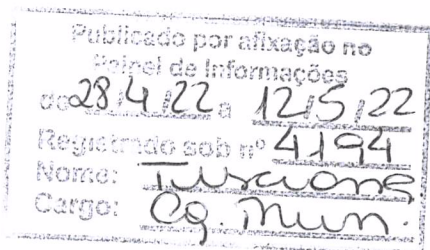 Publicado por afixação no
Painel de Informações
de 28/4/22 a 12/5/22
Registrado sob nº 4194
Nome:
Cargo: Ag. Mun.